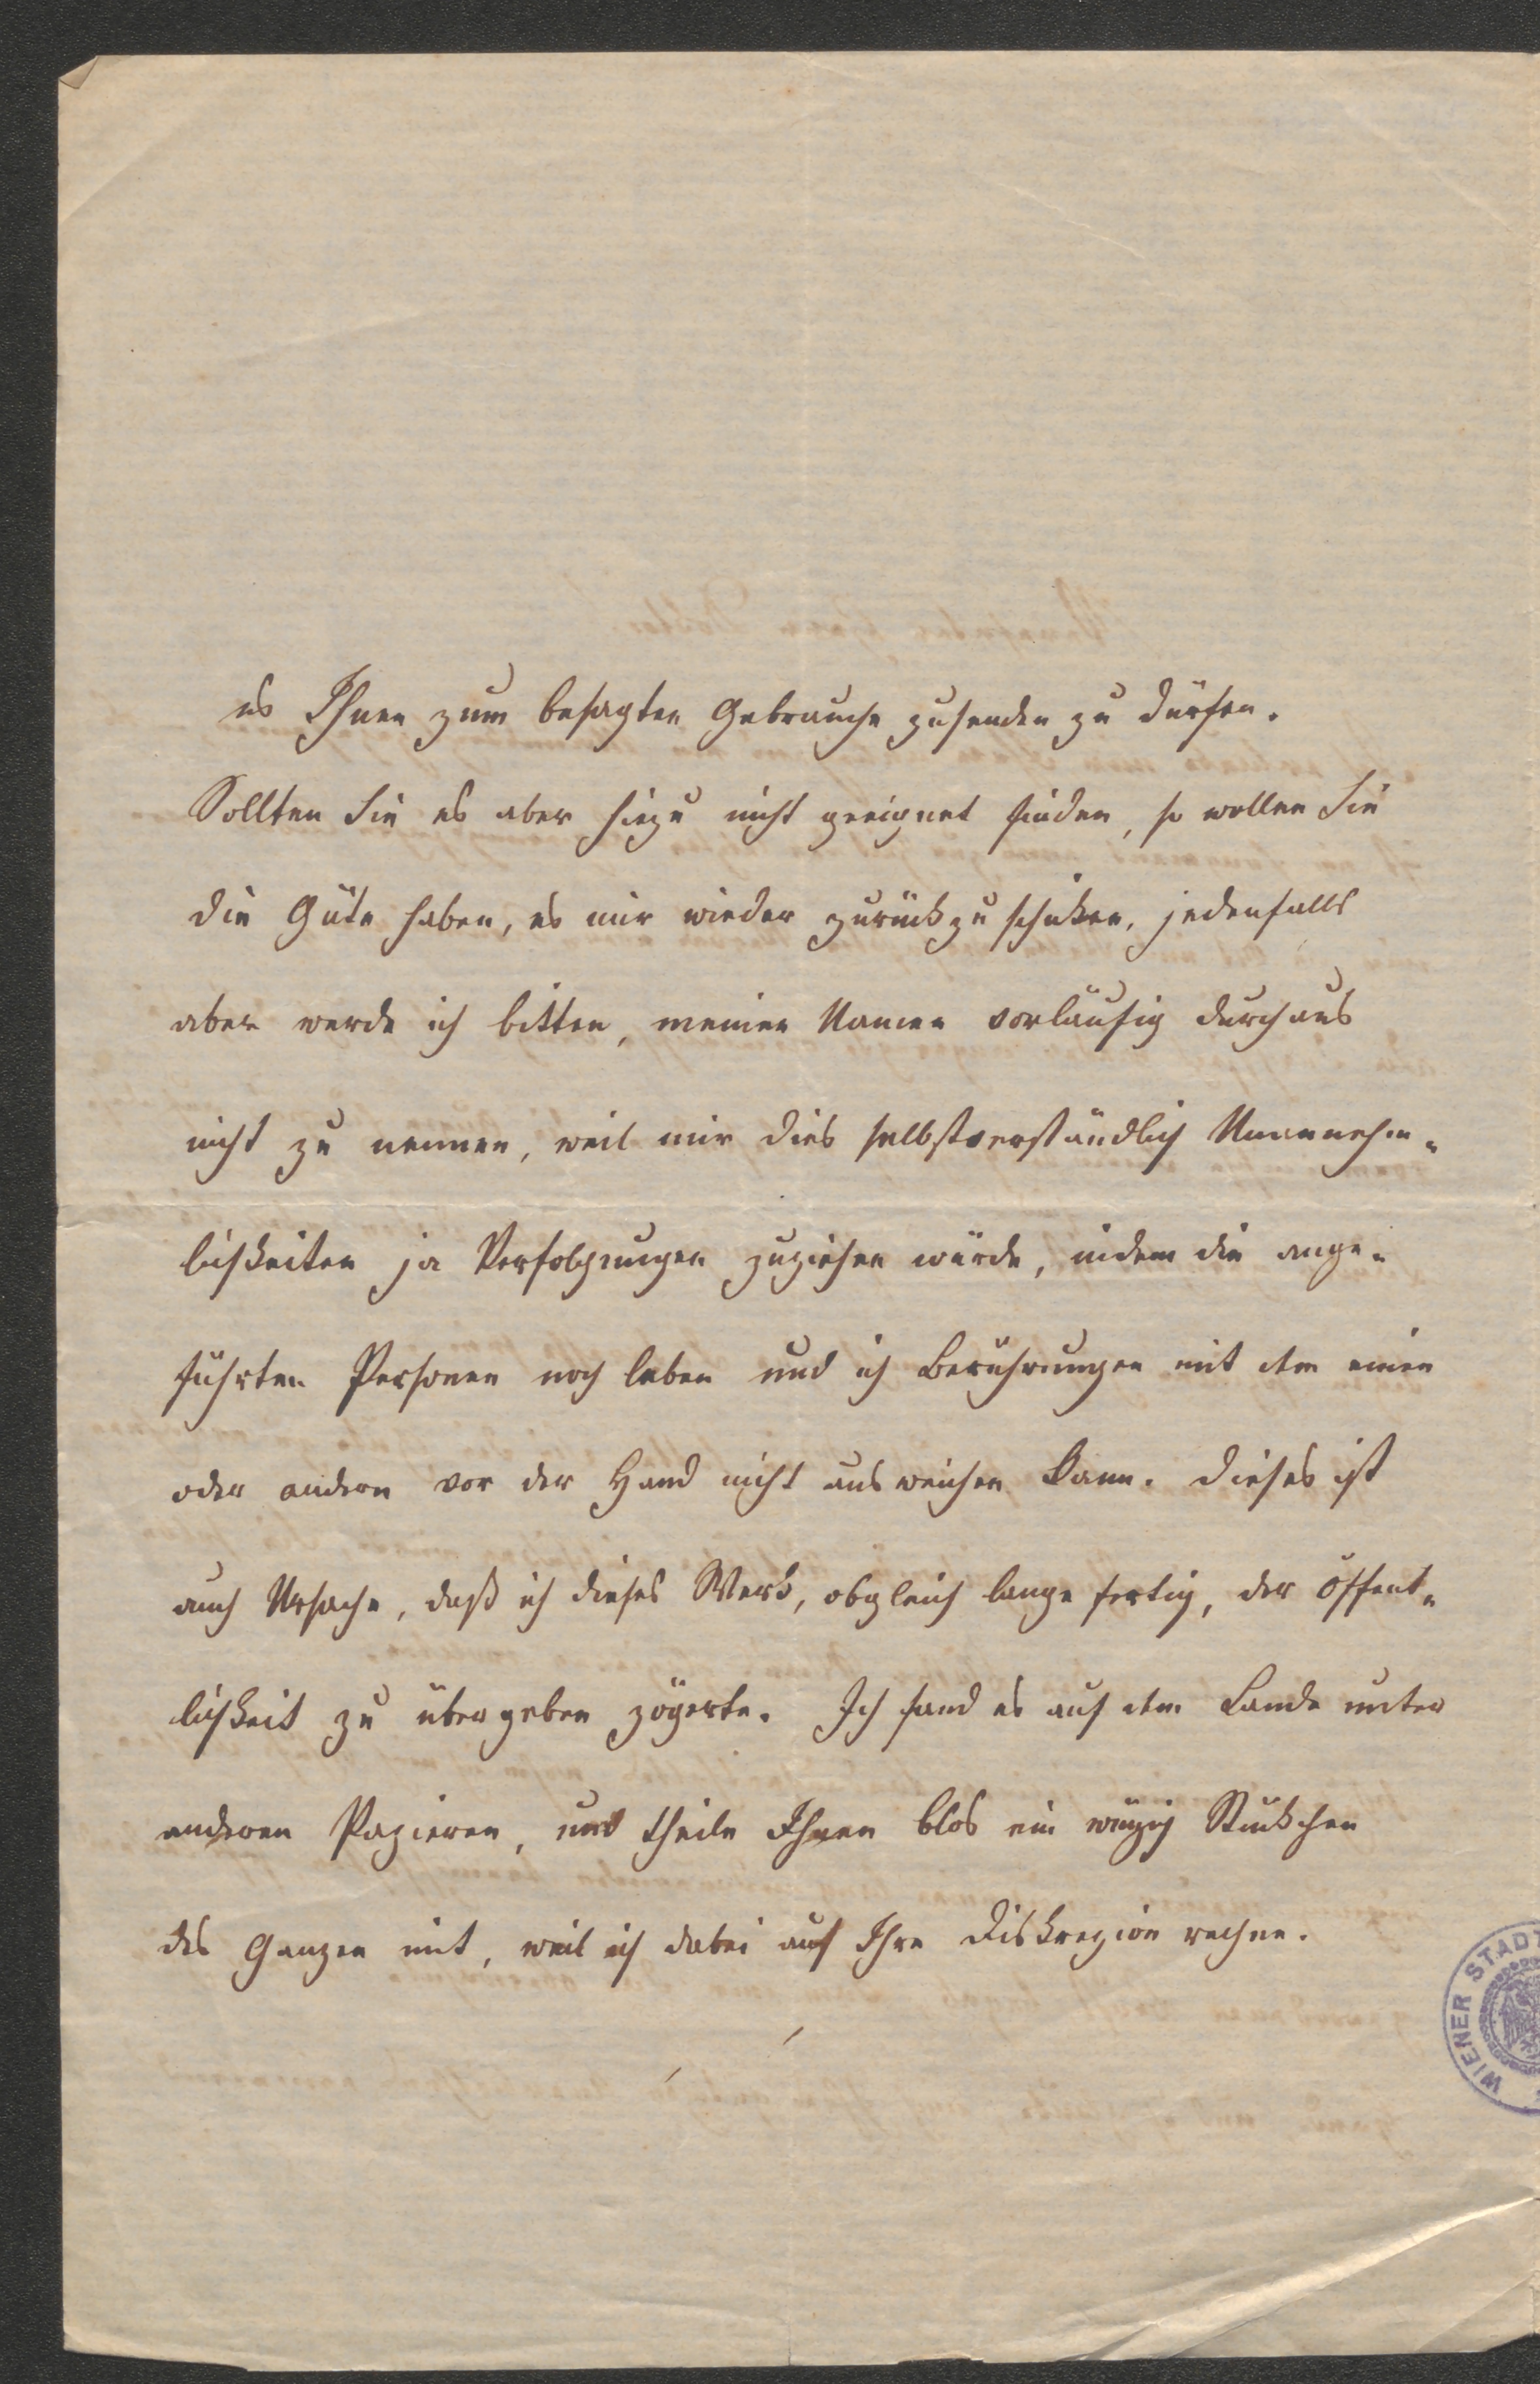 es Ihnen zum besagten Gebrauche zusenden zu dürfen.
Sollten Sie es aber hiezu nicht geeignet finden, so wollen Sie
die Güte haben, es mir wieder zurückzuschiken, jedenfalls
aber werde ich bitten, meinen Namen vorläufig durchaus
nicht zu nennen, weil mir dies selbstverständlich Unannehm-
lichkeiten ja Verfolgungen zuziehen würde, indem die ange-
führten Personen noch leben und ich Berührungen mit dem einen
oder andern vor der Hand nicht ausweichen kann. Dieses ist
auch Ursache, daß ich dieses Werk, obgleich lange fertig, der Öffent-
lichkeit zu übergeben zögerte. Ich fand es auf dem Lande unter
anderen Papieren, und theile Ihnen blos ein winzig Stükchen
des Ganzen mit, weil ich dabei auf Ihre Diskrezion rechne.
WIENER STADT